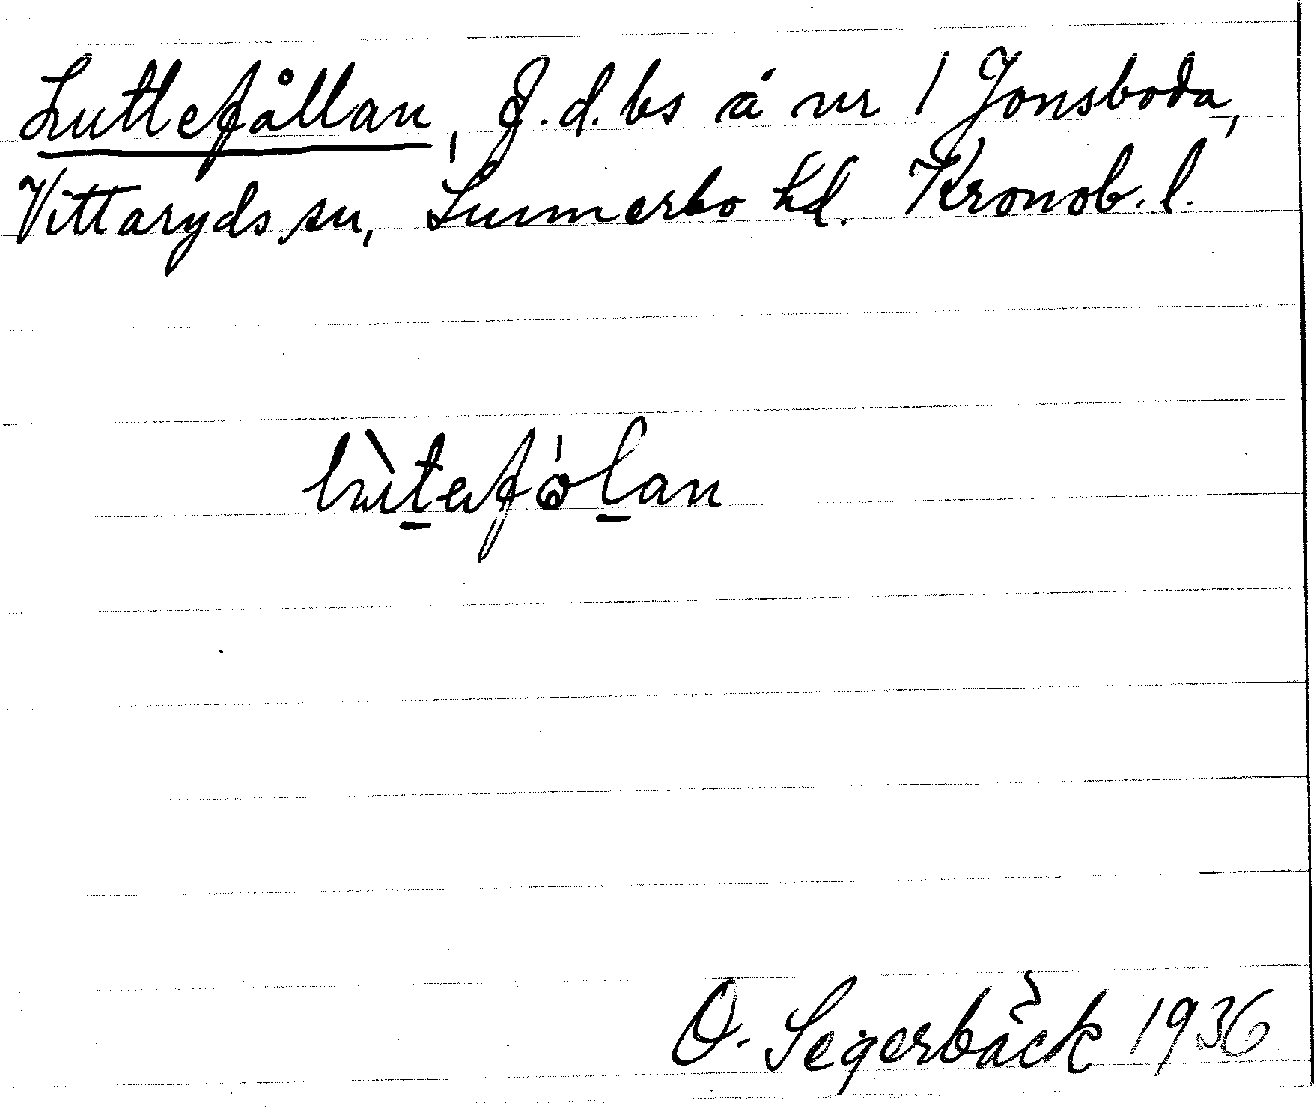 Luttefållan, f.d. bs å nr 1 Jonsboda,
Vittaryds sn, Sunnerbo hd. Kronob. l.
lùt̲efó̲l̲an
O. Segerbäck 1936